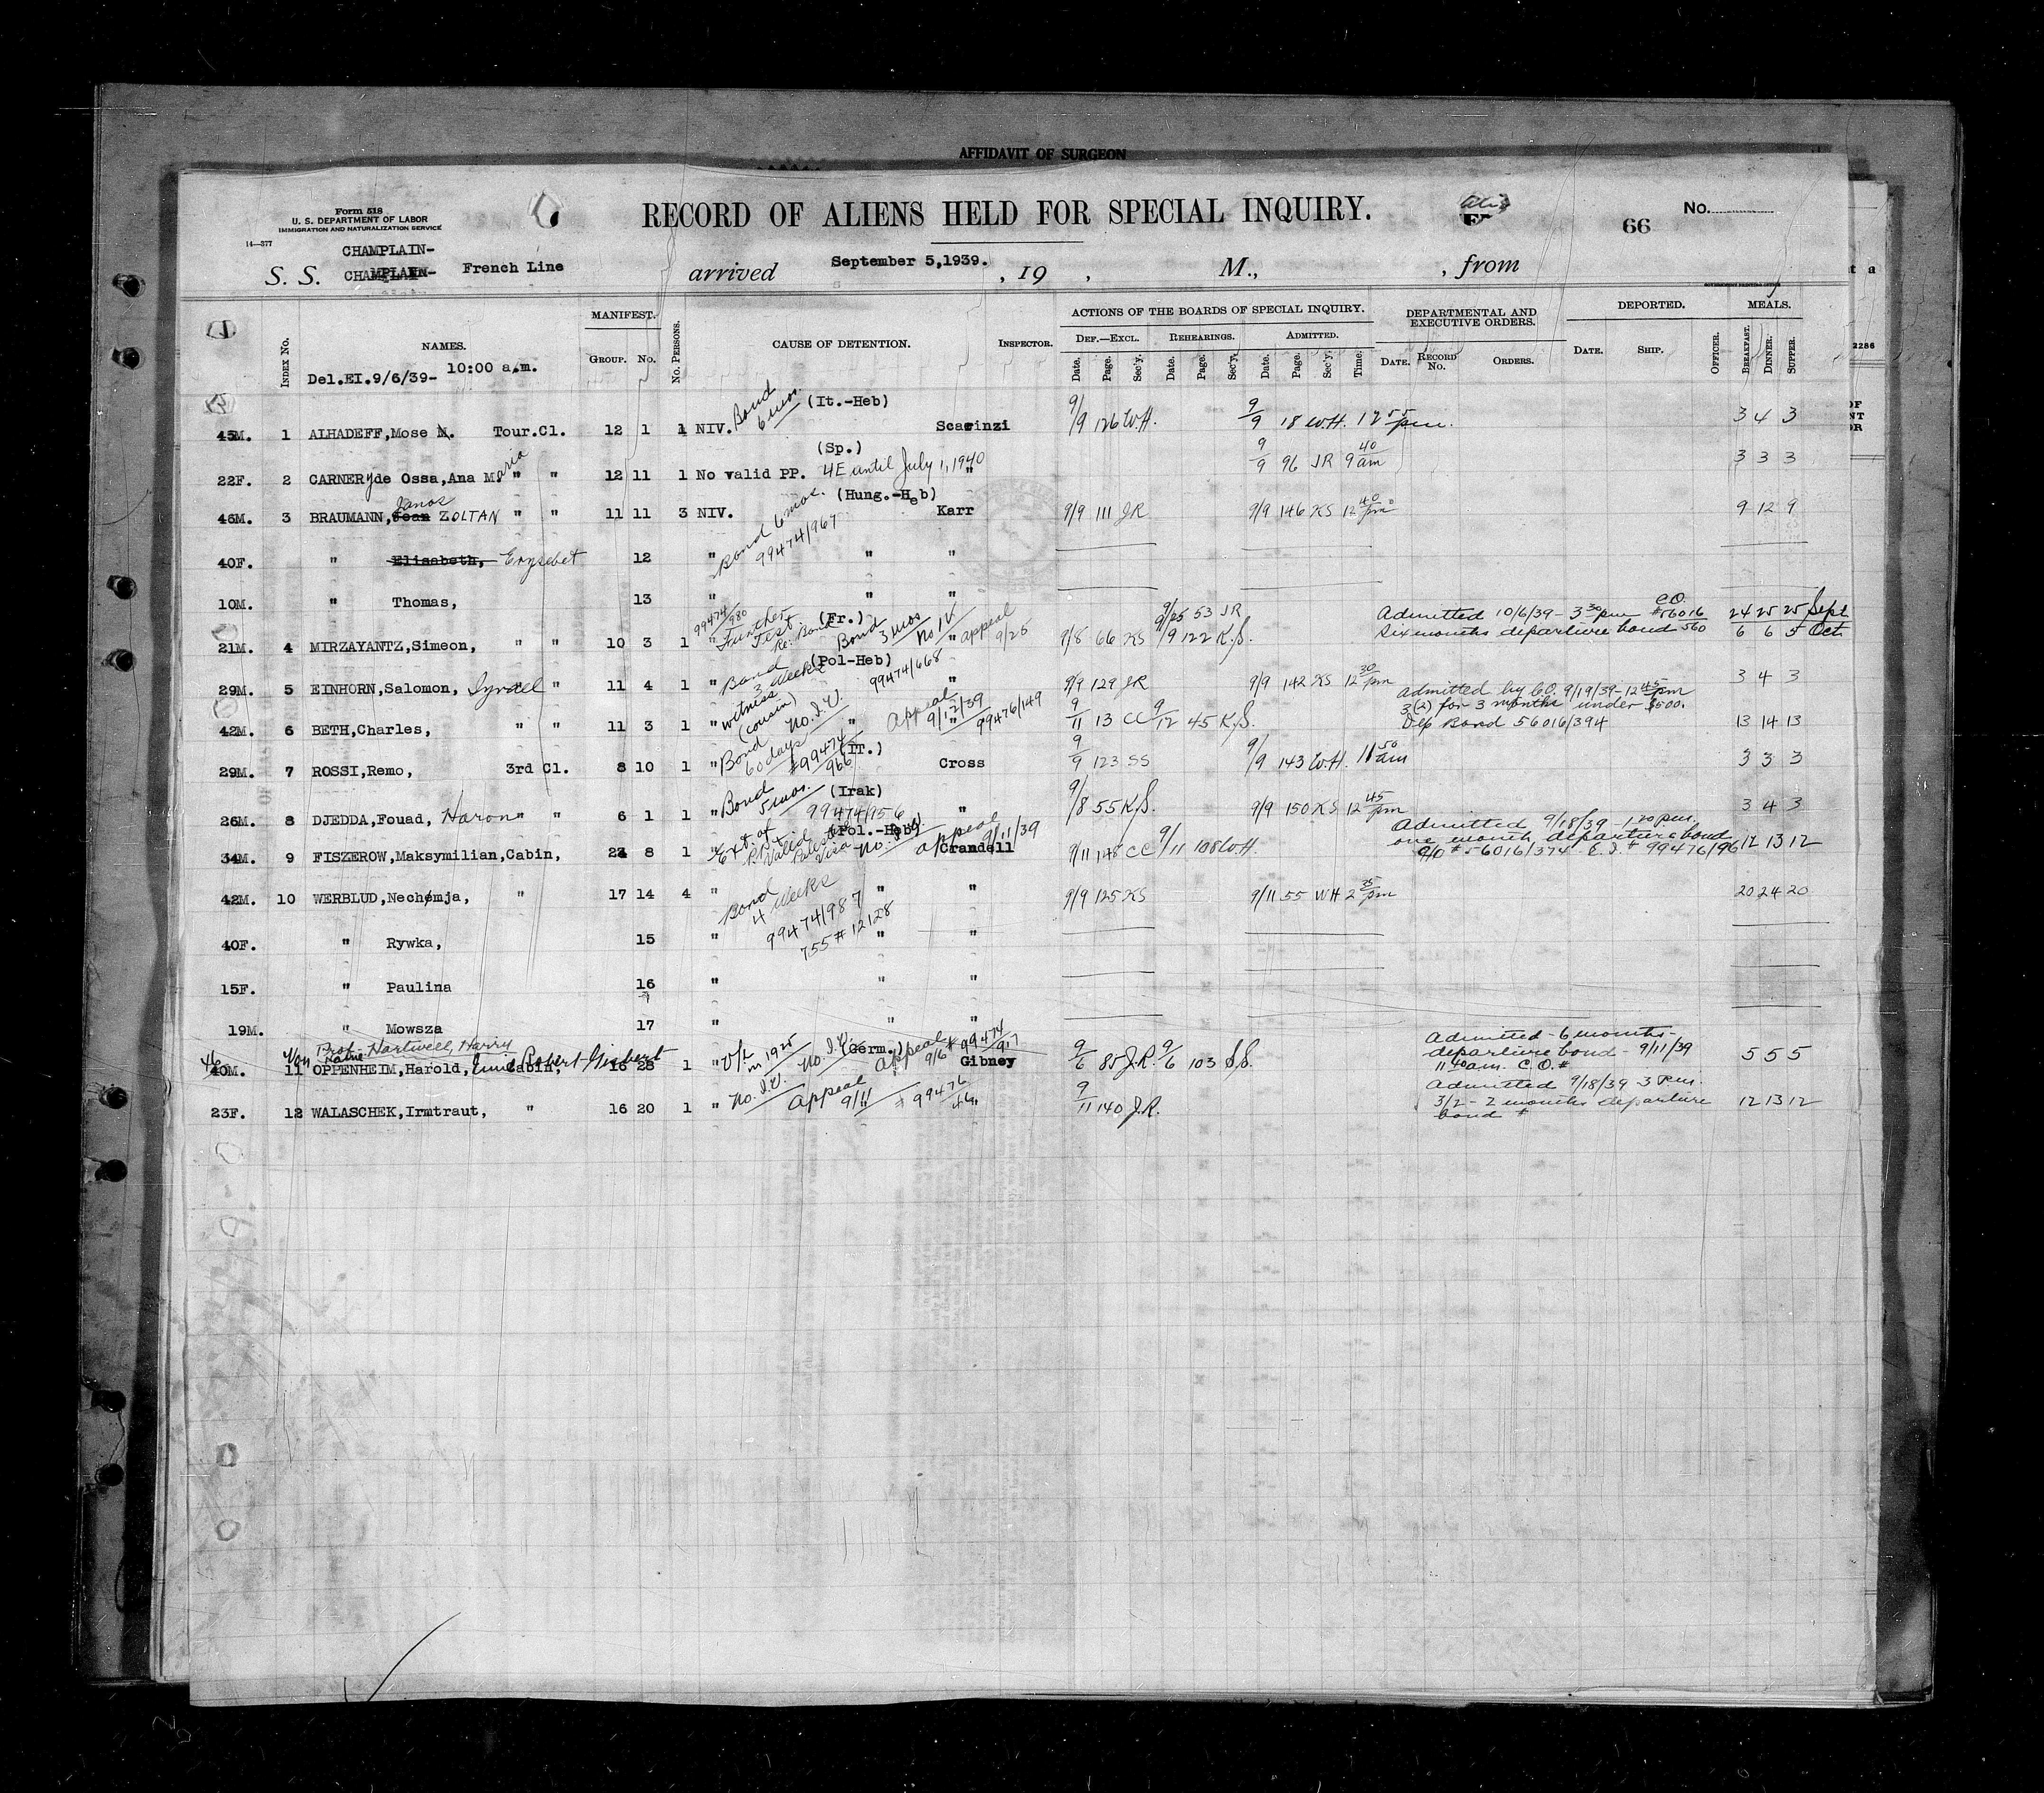 AFFIDAVIT OF SURGEON
Form 518
U. S. DEPARTMENT OF LABOR
IMMIGRATION AND NATURALIZATION SERVICE
14—377
RECORD OF ALIENS HELD FOR SPECIAL INQUIRY.
66 No.
CHAMPLAIN-
S. S. CHAMPLAIN- French Line arrived September 5,1939. , 19 , M., , from
INDEX No. NAMES. MANIFEST. GROUP. No. No. PERSONS. CAUSE OF DETENTION. INSPECTOR. ACTIONS OF THE BOARDS OF SPECIAL INQUIRY. DEPARTMENTAL AND EXECUTIVE ORDERS. DEPORTED. MEALS.
DEF.—EXCL. REHEARINGS. ADMITTED.
Date. Page. Sec'y. Date. Page. Sec'y. Date. Page. Sec'y. Time. DATE. RECORD No. ORDERS. DATE. SHIP. OFFICER. BREAKFAST. DINNER. SUPPER.
2286
Del.EI.9/6/39- 10:00 a.m.
Bond 6 mos. (It.-Heb)
45M. 1 ALHADEFF,Mose M. Tour.Cl. 12 1 1 NIV. Scarinzi 9/9 126 W.H. 9/9 18 W.H. 12 55 pm. 3 4 3
(Sp.)
22F. 2 CARNERyde Ossa,Ana Maria " " 12 11 1 No valid PP. 4E until July 1, 1940 " 9/9 96 JR 9 40 am 3 3 3
(Hung.-Heb)
46M. 3 BRAUMANN, Jean Janos ZOLTAN " " 11 11 3 NIV. Karr 9/9 111 JR 9/9 146 KS 12 40 pm 9 12 9
Bond 6 mos. 99474/967
40F. " Elisabeth, Erzsebet 12 " " "
10M. " Thomas, 13 " " "
99474/980 Further Test. Re: Bond (Fr.) Bond 3 mos No IV appeal 9/25
21M. 4 MIRZAYANTZ,Simeon, " " 10 3 1 " " 9/8 66 KS 9/25 53 JR 9/9 122 K.S.
Admitted 10/6/39 - 3 30 pm C.O. #56016
Six months departure bond 560
24 25 25 Sept
6 6 5 Oct
Bond 3 weeks (Pol-Heb) 99474/668
29M. 5 EINHORN,Salomon, Izrael " 11 4 1 " " 9/9 129 JR 9/9 142 KS 12 30 pm 3 4 3
witness (cousin) No. I.V. Appeal 9/12/39 99476/149
42M. 6 BETH,Charles, " " 11 3 1 " " " 9/11 13 CC 9/12 45 K.S.
Admitted by CO. 9/19/39 - 12 45 pm
3(2) for 3 months under $500.
Dep Bond 56016/394 13 14 13
Bond 60 days #99474/966 (IT.)
29M. 7 ROSSI,Remo, 3rd Cl. 8 10 1 " Cross 9/9 123 SS 9/9 143 W.H. 11 50 am 3 3 3
Bond 5 mos. (Irak) 99474/956
26M. 8 DJEDDA,Fouad, Haron " " 6 1 1 " " 9/8 55 K.S. 9/9 150 KS 12 45 pm 3 4 3
Ext. of Valid Visa (Pol.-Heb) appeal 9/11/39
34M. 9 FISZEROW,Maksymilian,Cabin, 8 1 " Crandell 9/11 148 CC 9/11 108 W.H.
Admitted 9/18/39 - 1 20 pm.
one month departure bond
C/O #56016/374 - E.I.# 99476/96 12 13 12
Bond 4 Weeks 99474/987
755 # 12128
42M. 10 WERBLUD,Nechemja, " 17 14 4 " " " 9/9 125 KS 9/11 55 WH 2 35 pm 20 24 20
40F. " Rywka, 15 " " "
15F. " Paulina 16 " " "
19M. " Mowsza 17 " " "
Prof. Hartwell, Harry
in 1925 No. I.V. (Germ.) Appeal 9/6 #99474/917
46 40M. 11 Von OPPENHEIM,Harold, Emil Robert Gisbert Cabin, 16 28 1 " Gibney 9/6 85 J.R. 9/6 103 S.S.
Admitted - 6 months -
departure bond - 9/11/39
11 40 am. C.O.# 5 5 5
No. I.V. Appeal 9/11 # 99476/46
23F. 12 WALASCHEK,Irmtraut, " 16 20 1 " " 9/11 140 J.R.
Admitted 9/18/39 3 P.m.
3/2 - 2 months departure
bond # 12 13 12